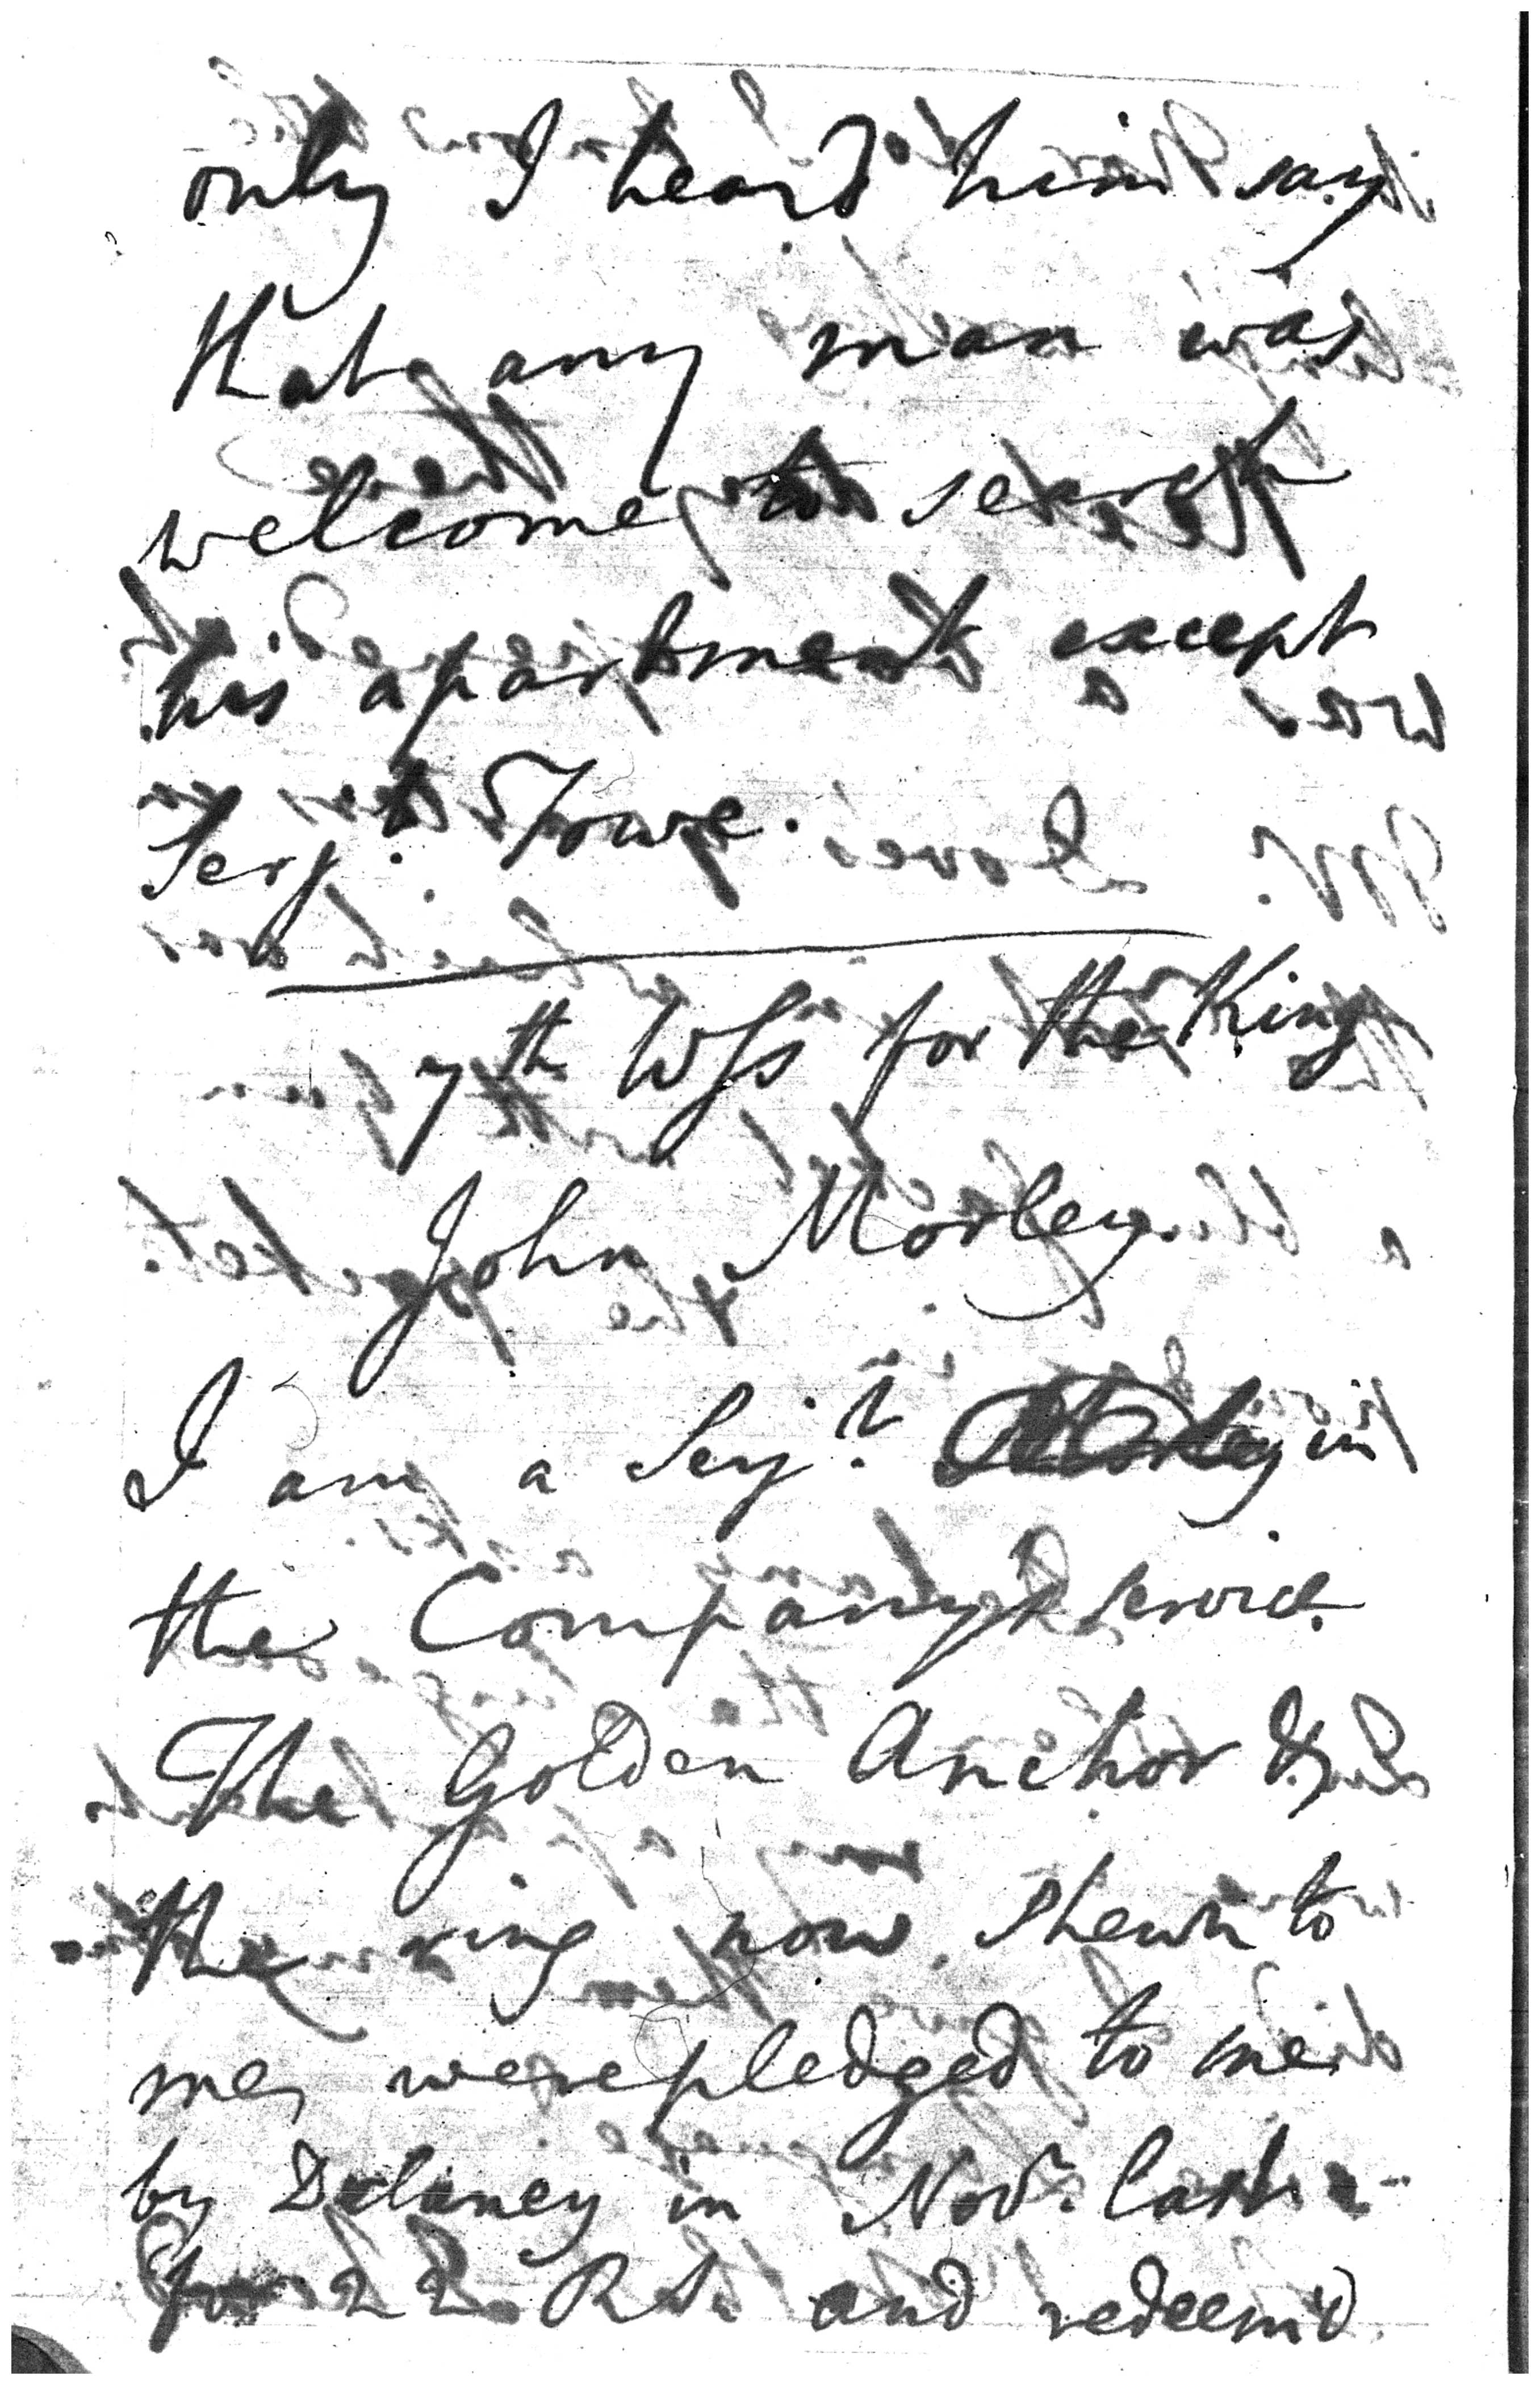 only I heard him say
that any man was
welcome to search
his apartment except
Serjt. Towre.
7th Wss for the King
John Morley
I am a Serjt. in
the Company's service.
The Golden Anchor &
the ring now shewn to
me, were pledged to me
by Delaney in Novr. last
for 22 Rs. and redeem'd